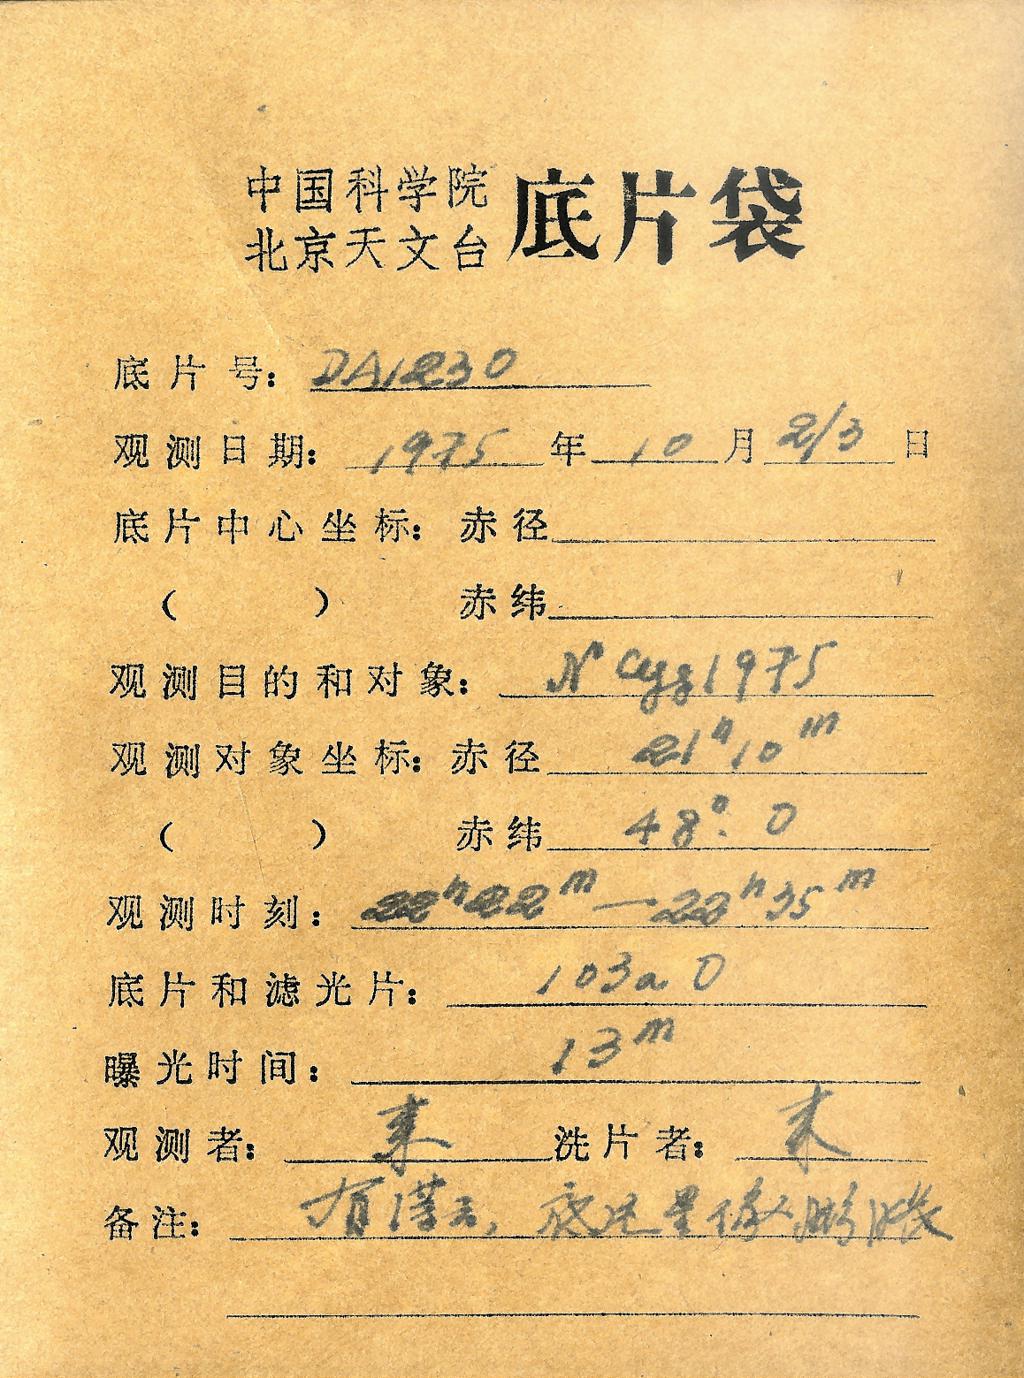 中国科学院
北京天文台
底片袋
底片号：DA1230
观测日期：1975年10月2/3日
底片中心坐标：赤径
（ ） 赤纬
观测目的和对象：N Cyg 1975
观测对象坐标：赤径 21ʰ10ᵐ
（ ） 赤纬 48°.0
观测时刻：22ʰ22ᵐ—22ʰ35ᵐ
底片和滤光片：103a O
曝光时间：13ᵐ
观测者： 洗片者：
备注：有薄云，底 星像